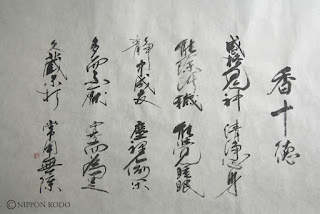 香十徳
感格鬼神 清浄心身
能除汚穢 能覚睡眠
静中成友 塵裡偸閑
多而不厭 寡而為足
久蔵不朽 常用無障
©NIPPON KODO